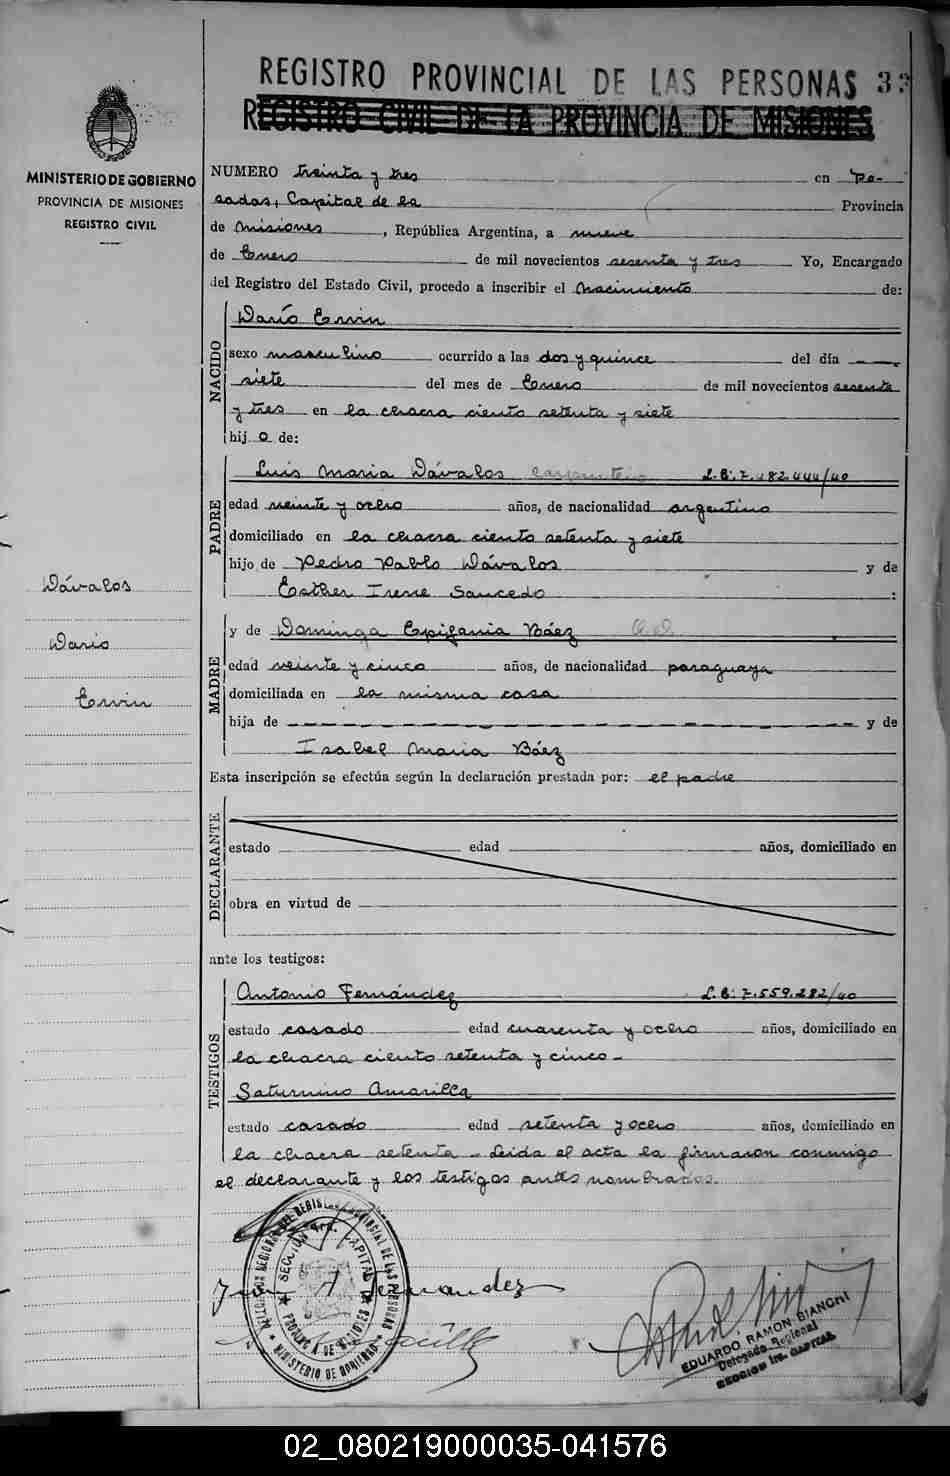 REGISTRO PROVINCIAL DE LAS PERSONAS 33
REGISTRO CIVIL DE LA PROVINCIA DE MISIONES
MINISTERIO DE GOBIERNO
PROVINCIA DE MISIONES
REGISTRO CIVIL
NUMERO treinta y tres en Po-
sadas, Capital de la Provincia
de Misiones, República Argentina, a nueve
de Enero de mil novecientos sesenta y tres Yo, Encargado
del Registro del Estado Civil, procedo a inscribir el Nacimiento de:
NACIDO
Darío Ervin
sexo masculino ocurrido a las dos y quince del día
siete del mes de Enero de mil novecientos sesenta
y tres en la chacra ciento setenta y siete
hijo de:
PADRE
Luis Maria Dávalos carpintero L.E. 7.482.444/40
edad veinte y ocho años, de nacionalidad argentino
domiciliado en la chacra ciento setenta y siete
hijo de Pedro Pablo Dávalos y de
Esther Irene Saucedo :
Dávalos
Dario
Ervin
MADRE
y de Dominga Epifania Báez
edad veinte y cinco años, de nacionalidad paraguaya
domiciliada en la misma casa
hija de y de
Isabel Maria Báez
Esta inscripción se efectúa según la declaración prestada por: el padre
DECLARANTE
estado edad años, domiciliado en
obra en virtud de
ante los testigos:
TESTIGOS
Antonio Fernández L.E. 7.559.282/40
estado casado edad cuarenta y ocho años, domiciliado en
la chacra ciento setenta y cinco-
Saturnino Amarilla
estado casado edad setenta y ocho años, domiciliado en
la chacra setenta - Leida el acta la firmaron conmigo
el declarante y los testigos antes nombrados.
DELEGADOS REGIONES DEL REGISTRO PROVINCIAL DE LAS PERSONAS
SECCION 1ra. CAPITAL
PROVINCIA DE MISIONES
MINISTERIO DE GOBIERNO
Fernandez
EDUARDO RAMON BIANCHI
Delegado Regional
SECCION 1ra. CAPITAL
02_080219000035-041576